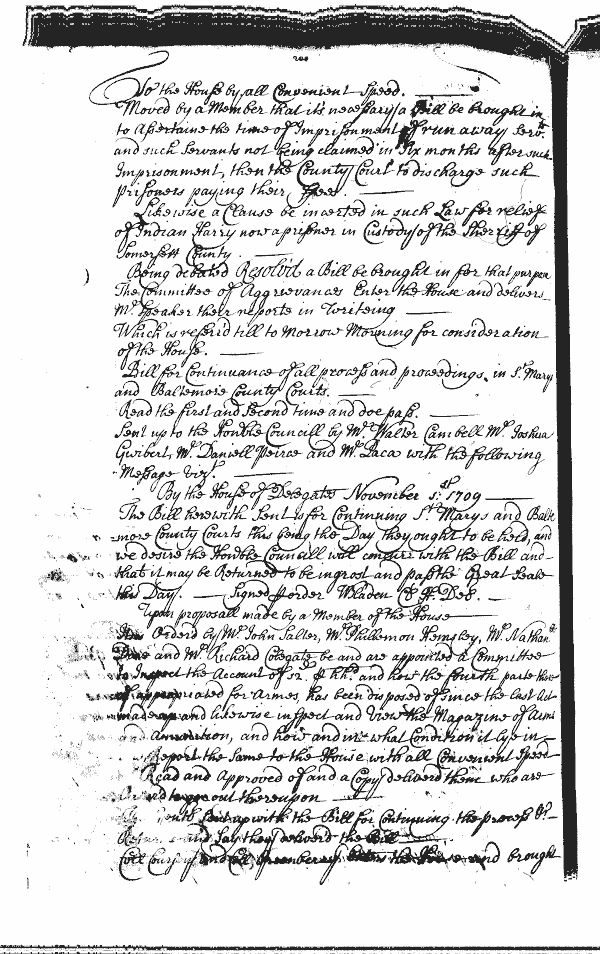 To the House by all Convenient Speed.
Moved by a Member that it's necessary a Bill be brought in
to Assertaine the time of Imprisonment of run away Servts.
and such Servants not being claimed in Six months after such
Imprisonment, then the County Court to discharge such
prisoners paying their ffees.
Likewise a Clause be inserted in such Law for relief
of Indian Harry now a prisoner in Custody of the Sherriff of
Somersett County.
Being debated Resolv'd a Bill be brought in for that purpose
The Committee of Aggrievances Enter the House and delivers
Mr. Speaker their reporte in Writeing
Which is referrd till to Morrow Morning for consideration
of the House.
Bill for Continuance of all process and proceedings in St. Marys
and Baltemore County Courts.
Read the first and Second time and doe pass.
Sent up to the Honble Councill by Mr. Walter Cambell Mr. Joshua
Gwibert, Mr. Daniell Peirce and Mr. Laca with the following
Message vizt.
By the House of Delegates November 1st. 1709
The Bill herewith Sent is for Continuing St. Marys and Balte
more County Courts this being the Day they ought to be held, and
we desire the Honble Councill will concurr with the Bill and
that it may be Returned to be ingrost and pass the Great Seale
this Day. Signed p order W Bladen Cl. H. Del.
Upon proposall made by a Member of the House
Orderd by Mr. John Salter, Mr. Phillemon Hemsley, Mr. Nathan
and Mr. Richard Colegate be and are appointed a Committee
to Inspect the Account of 12d. p hhd. and how the fourth parte there
of appropriated for Armes, has been disposed of Since the last Acct
made up and likewise inspect and View the Magazine of Armes
and Amunition, and how and in what Condition it lye in
Report the Same to the House with all Convenient Speed
Read and Approved of and a Copy deliverd them who are
out thereupon
Sent up with the Bill for Continuing the process &c.
Return and Say they deliverd the Bill
and brought